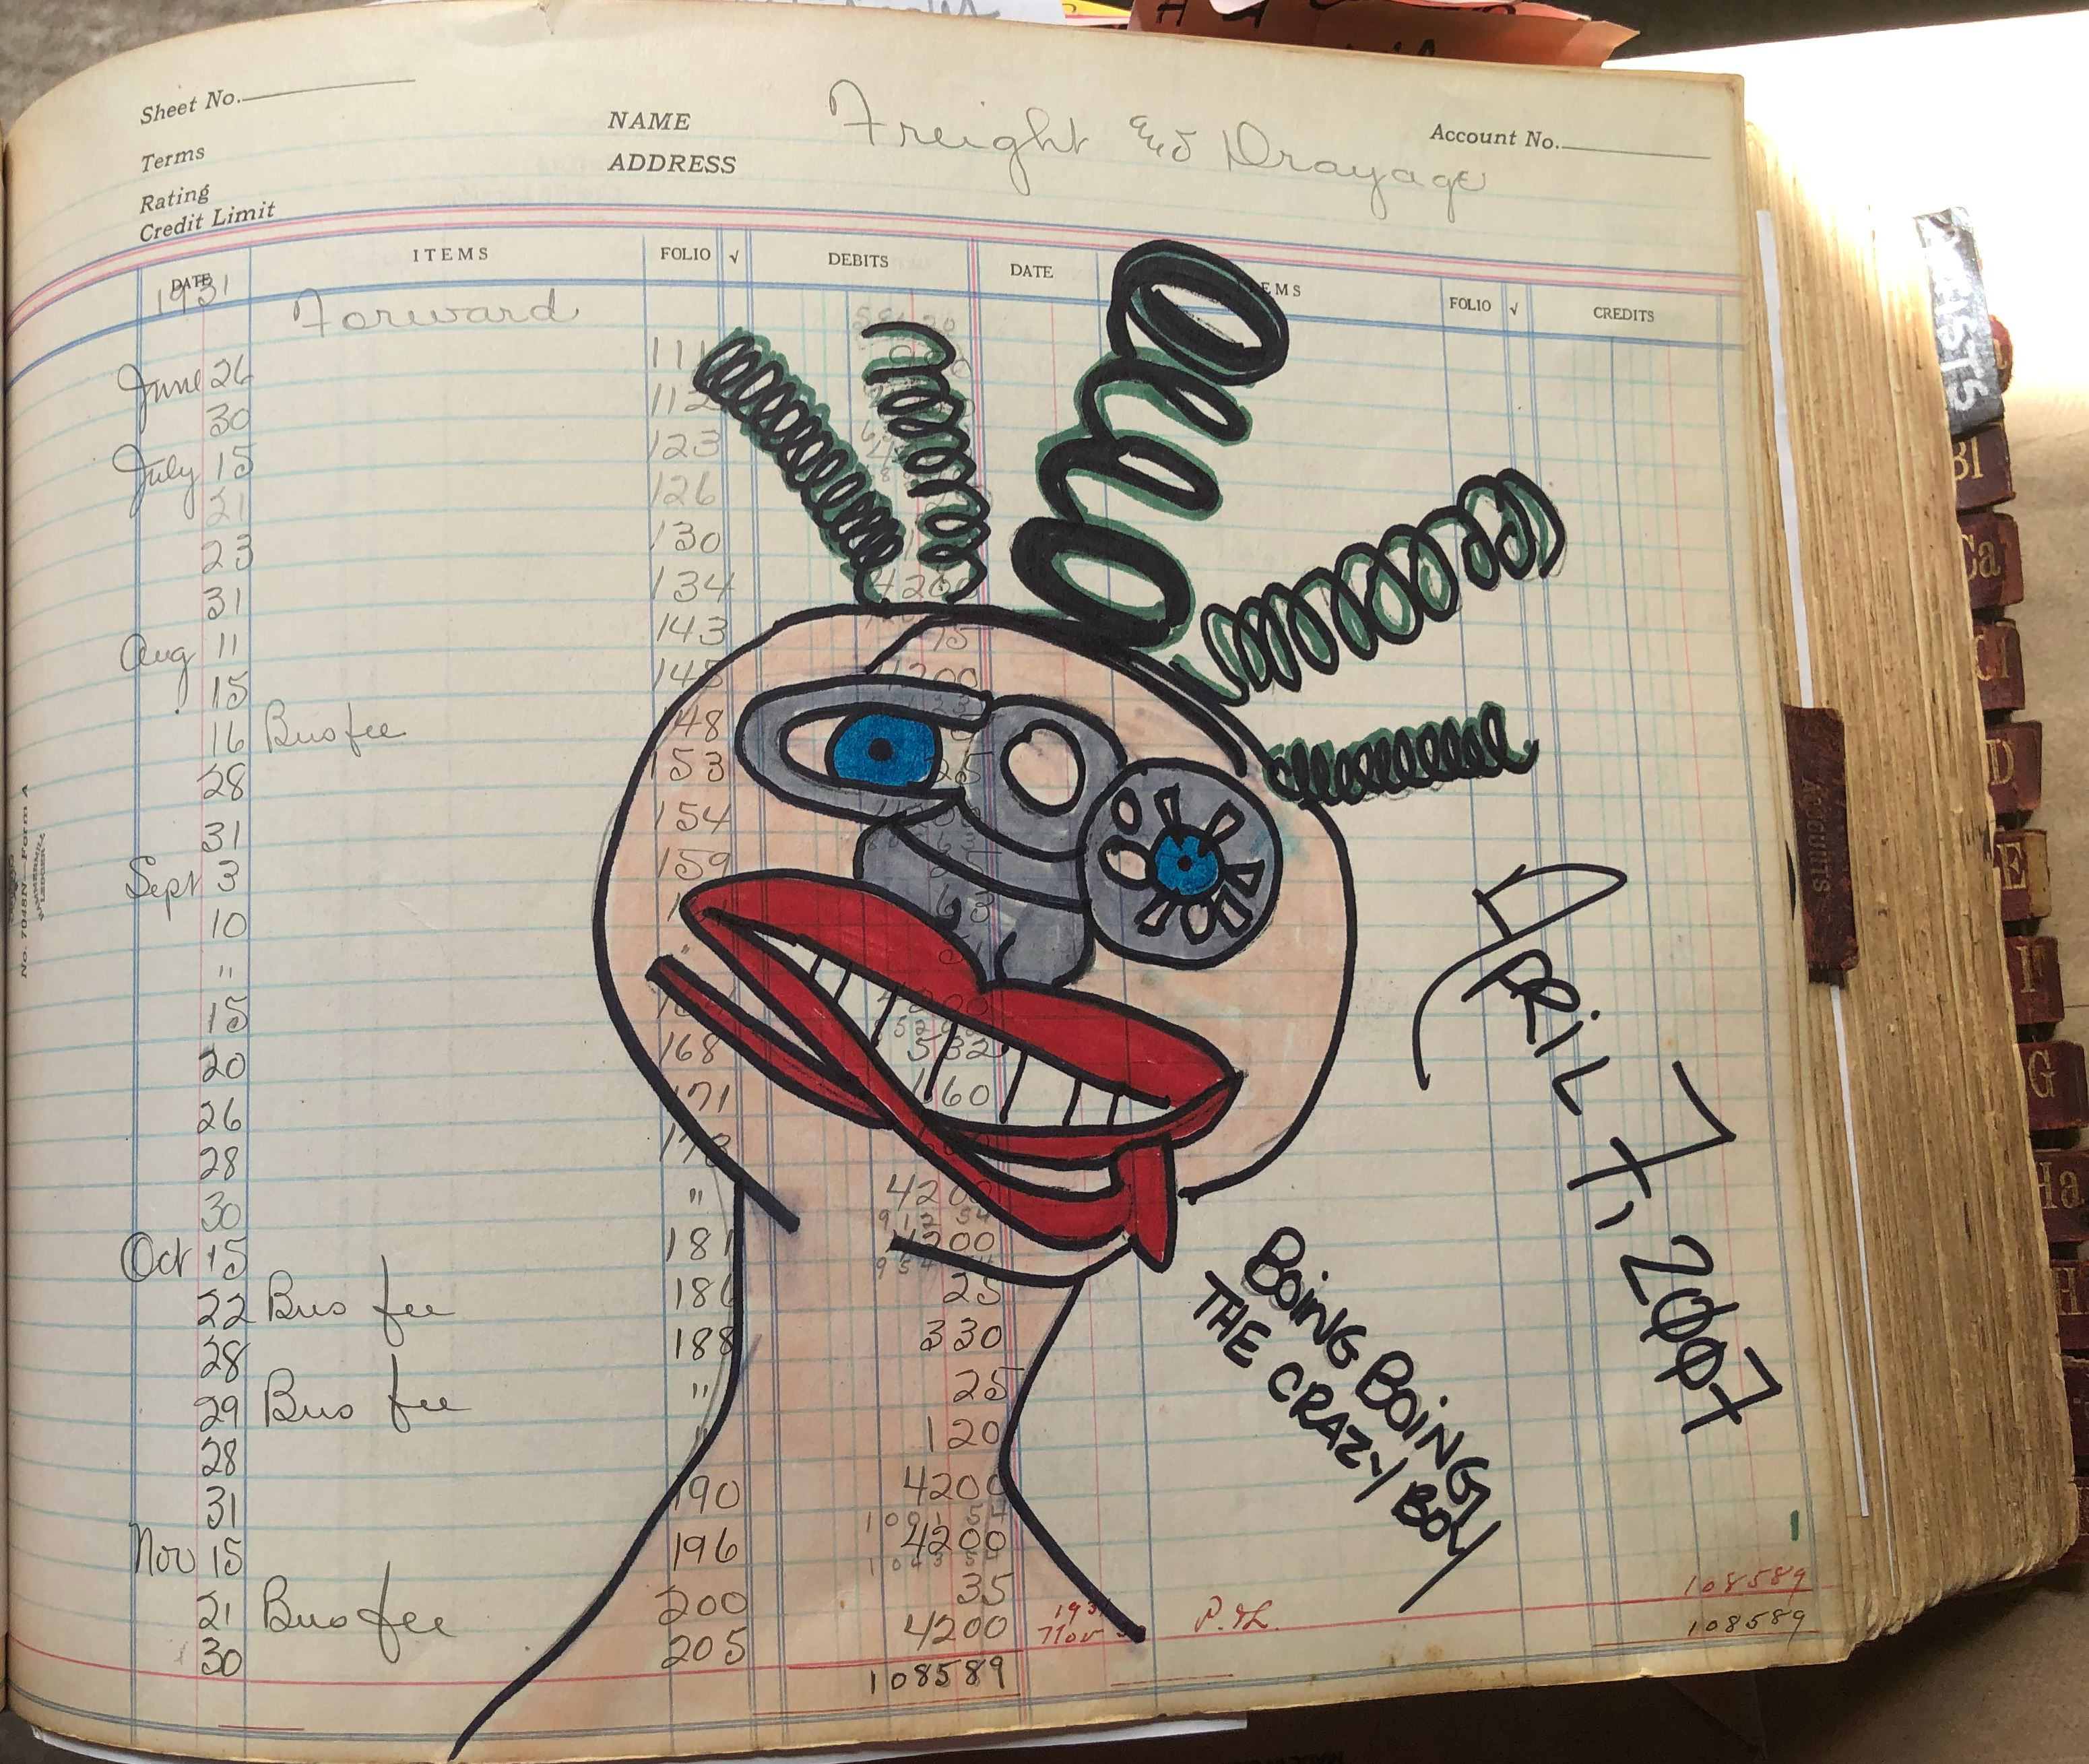 Sheet No.
NAME Freight and Drayage Account No.
Terms
ADDRESS
Rating
Credit Limit
DATE ITEMS FOLIO √ DEBITS DATE ITEMS FOLIO √ CREDITS
1931 Forward
June 26 111
30 112
July 15 123
21 126
23 130
31 134 4200
Aug 11 143 75
15 145 4200
16 Bus fee 148
28 153 25
31 154
Sept 3 159
10
" "
15 4200
20 168 532
26 171 160
28
30 " 4200
912 54
Oct 15 181 4200
22 Bus fee 186 25
28 188 330
29 Bus fee " 25
28 " 120
31 190 4200
1001 54
Nov 15 196 4200
1043 54
21 Bus fee 200 35
30 205 4200
108589
1931
Nov P.&L. 108589
108589
APRIL 7, 2007
BOING BOING
THE CRAZY BOY
No. 7048N—Form A
HAMMERMILL
LEDGER
ACCOUNTS
Bl
Ca
Cl
D
E
F
G
Ha
H